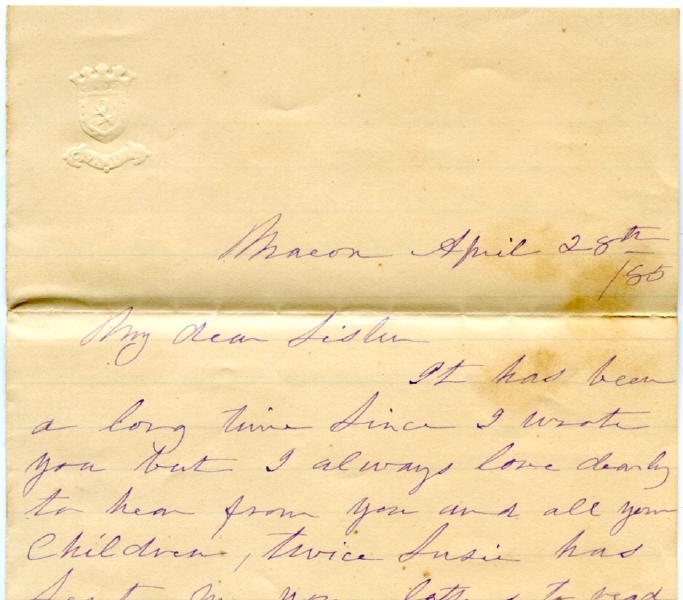 Macon April 28th
/85
My dear Sister
It has been
a long time Since I wrote
you but I always love dearly
to hear from you and all your
Children, twice Susie has
Sent me your letters to read